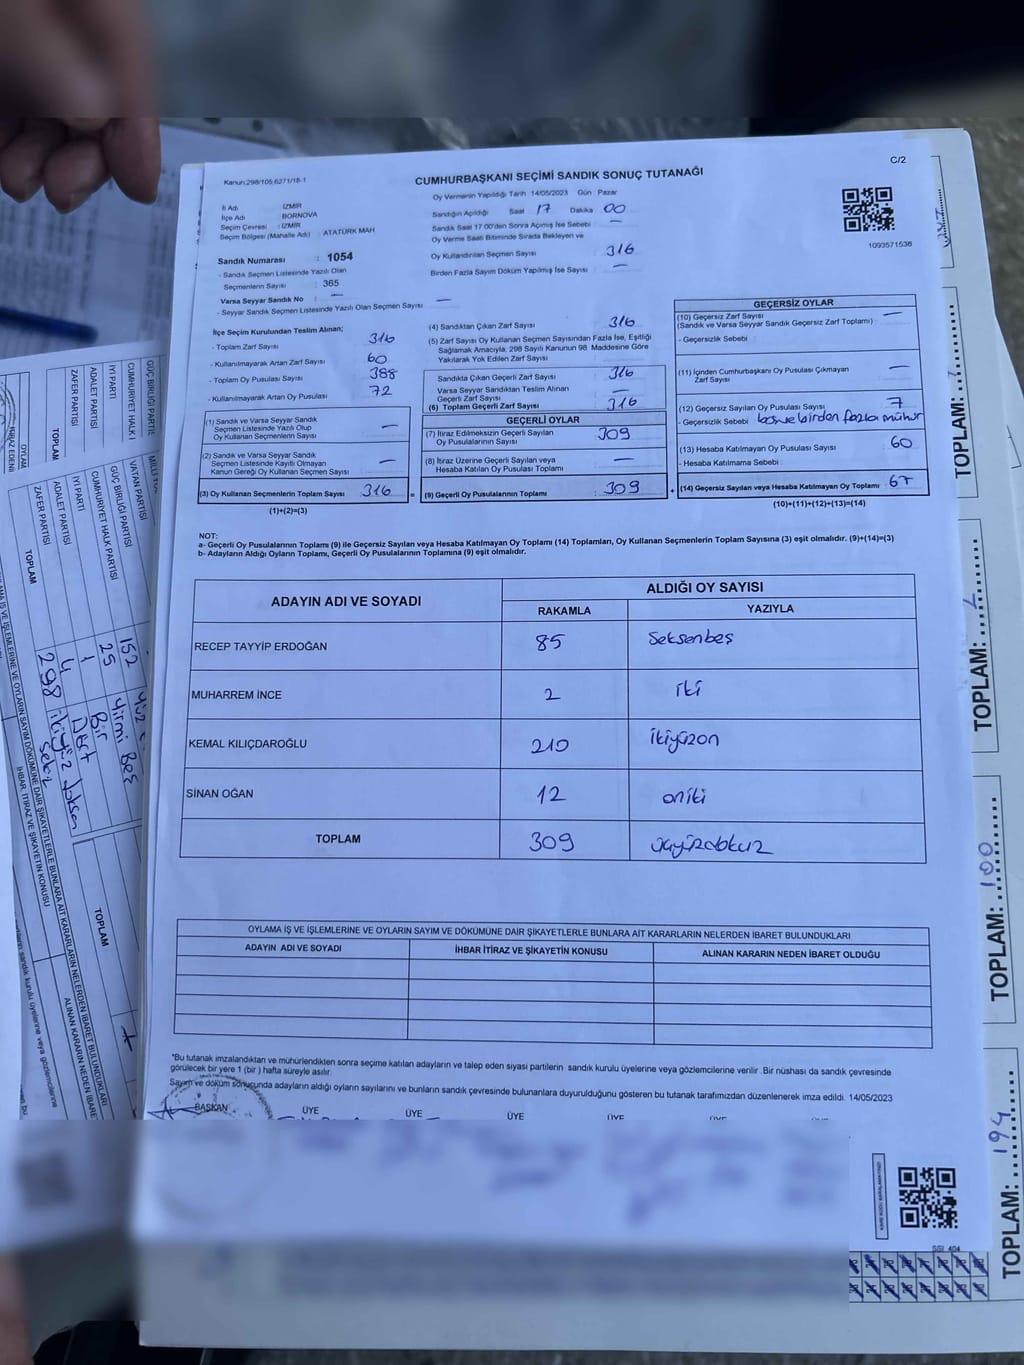 C/2
Kanun:298/105;6271/18-1
CUMHURBAŞKANI SEÇİMİ SANDIK SONUÇ TUTANAĞI
İl Adı : İZMİR
İlçe Adı : BORNOVA
Seçim Çevresi : İZMİR
Seçim Bölgesi (Mahalle Adı) : ATATÜRK MAH
Oy Vermenin Yapıldığı Tarih 14/05/2023 Gün Pazar
Sandığın Açıldığı Saat 17 Dakika 00
Sandık Saat 17.00'den Sonra Açımış İse Sebebi : —
Oy Verme Saati Bitiminde Sırada Bekleyen ve
Oy Kullandırılan Seçmen Sayısı : 316
Birden Fazla Sayım Döküm Yapılmış İse Sayısı : —
1093571538
Sandık Numarası : 1054
- Sandık Seçmen Listesinde Yazılı Olan
Seçmenlerin Sayısı : 365
Varsa Seyyar Sandık No : —
- Seyyar Sandık Seçmen Listesinde Yazılı Olan Seçmen Sayısı : —
İlçe Seçim Kurulundan Teslim Alınan;
- Toplam Zarf Sayısı : 316
- Kullanılmayarak Artan Zarf Sayısı : 60
- Toplam Oy Pusulası Sayısı : 388
- Kullanılmayarak Artan Oy Pusulası : 72
(1) Sandık ve Varsa Seyyar Sandık
Seçmen Listesinde Yazılı Olup
Oy Kullanan Seçmenlerin Sayısı : —
(2) Sandık ve Varsa Seyyar Sandık
Seçmen Listesinde Kayıtlı Olmayan
Kanun Gereği Oy Kullanan Seçmen Sayısı : —
(3) Oy Kullanan Seçmenlerin Toplam Sayısı : 316
(1)+(2)=(3)
(4) Sandıktan Çıkan Zarf Sayısı : 316
(5) Zarf Sayısı Oy Kullanan Seçmen Sayısından Fazla İse, Eşitliği
Sağlamak Amacıyla, 298 Sayılı Kanunun 98. Maddesine Göre
Yakılarak Yok Edilen Zarf Sayısı :
Sandıkta Çıkan Geçerli Zarf Sayısı : 316
Varsa Seyyar Sandıktan Teslim Alınan
Geçerli Zarf Sayısı : —
(6) Toplam Geçerli Zarf Sayısı : 316
GEÇERLİ OYLAR
(7) İtiraz Edilmeksizin Geçerli Sayılan
Oy Pusulalarının Sayısı : 309
(8) İtiraz Üzerine Geçerli Sayılan veya
Hesaba Katılan Oy Pusulası Toplamı : —
(9) Geçerli Oy Pusulalarının Toplamı : 309
GEÇERSİZ OYLAR
(10) Geçersiz Zarf Sayısı : —
(Sandık ve Varsa Seyyar Sandık Geçersiz Zarf Toplamı) :
- Geçersizlik Sebebi :
(11) İçinden Cumhurbaşkanı Oy Pusulası Çıkmayan
Zarf Sayısı : —
(12) Geçersiz Sayılan Oy Pusulası Sayısı : 7
- Geçersizlik Sebebi : birden fazla mühür
(13) Hesaba Katılmayan Oy Pusulası Sayısı : 60
- Hesaba Katılmama Sebebi :
(14) Geçersiz Sayılan veya Hesaba Katılmayan Oy Toplamı : 67
(10)+(11)+(12)+(13)=(14)
NOT:
a- Geçerli Oy Pusulalarının Toplamı (9) ile Geçersiz Sayılan veya Hesaba Katılmayan Oy Toplamı (14) Toplamları, Oy Kullanan Seçmenlerin Toplam Sayısına (3) eşit olmalıdır. (9)+(14)=(3)
b- Adayların Aldığı Oyların Toplamı, Geçerli Oy Pusulalarının Toplamına (9) eşit olmalıdır.
ADAYIN ADI VE SOYADI
ALDIĞI OY SAYISI
RAKAMLA YAZIYLA
RECEP TAYYİP ERDOĞAN 85 Seksenbeş
MUHARREM İNCE 2 iki
KEMAL KILIÇDAROĞLU 210 ikiyüzon
SİNAN OĞAN 12 oniki
TOPLAM 309 üçyüzdokuz
OYLAMA İŞ VE İŞLEMLERİNE VE OYLARIN SAYIM VE DÖKÜMÜNE DAİR ŞİKAYETLERLE BUNLARA AİT KARARLARIN NELERDEN İBARET BULUNDUKLARI
ADAYIN ADI VE SOYADI İHBAR İTİRAZ VE ŞİKAYETİN KONUSU ALINAN KARARIN NEDEN İBARET OLDUĞU
*Bu tutanak imzalandıktan ve mühürlendikten sonra seçime katılan adayların ve talep eden siyasi partilerin sandık kurulu üyelerine veya gözlemcilerine verilir .Bir nüshası da sandık çevresinde
görülecek bir yere 1 (bir ) hafta süreyle asılır.
Sayım ve döküm sonucunda adayların aldığı oyların sayılarını ve bunların sandık çevresinde bulunanlara duyurulduğunu gösteren bu tutanak tarafımızdan düzenlenerek imza edildi. 14/05/2023
BAŞKAN ÜYE ÜYE ÜYE ÜYE ÜYE
SGI 404
GÜÇ BİRLİĞİ PARTİSİ
CUMHURİYET HALK
İYİ PARTİ
ADALET PARTİSİ
ZAFER PARTİSİ
TOPLAM
VATAN PARTİSİ
GÜÇ BİRLİĞİ PARTİSİ
CUMHURİYET HALK PARTİSİ 152
İYİ PARTİ 25 Yirmi Beş
ADALET PARTİSİ 1 Bir
ZAFER PARTİSİ 4 Dört
TOPLAM 298 ikiyüz doksan sekiz
İHBAR, İTİRAZ VE ŞİKAYETİN KONUSU
TOPLAM
TOPLAM:
TOPLAM:
TOPLAM: 100
TOPLAM: 194